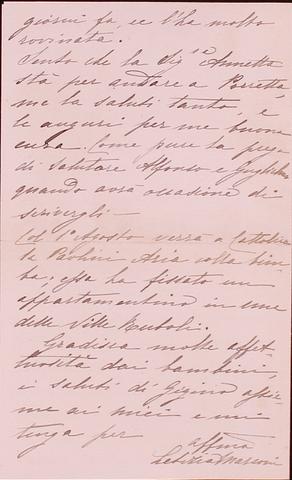 giorni fa, e l'ha molto
rovinata.
Sento che la Sig.na Annetta
sta per andare a Porretta,
me la saluti tanto e
le auguri per me buona
cura. Come pure la prego
di salutare Alfonso e Guglielmo
quando avrà occasione di
scrivergli —
Col 1º Agosto verrà a Cattolica
la Paolini Aria colla bim
ba; essa ha fissato un
appartamentino in una
delle Ville
Gradisca molte affet
tuosità dai bambini,
i saluti di Gigino assie
me ai miei e mi
tenga per
affma
Letizia Marconi